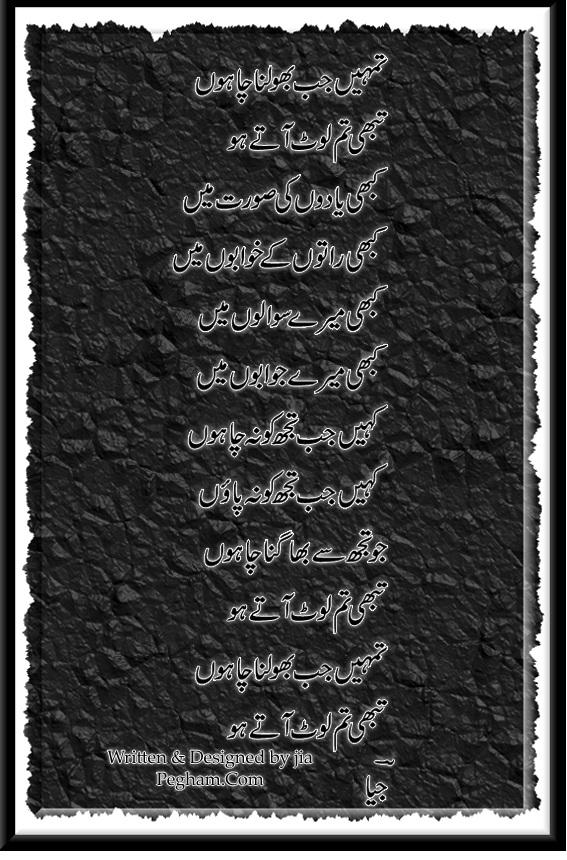 تمہیں جب بھولنا چاہوں
تبھی تم لوٹ آتے ہو
کبھی یادوں کی صورت میں
کبھی راتوں کے خوابوں میں
کبھی میرے سوالوں میں
کبھی میرے جوابوں میں
کہیں جب تجھ کو نہ چاہوں
کہیں جب تجھ کو نہ پاؤں
جو تجھ سے بھاگنا چاہوں
تبھی تم لوٹ آتے ہو
تمہیں جب بھولنا چاہوں
تبھی تم لوٹ آتے ہو
Written & Designed by jia
Pegham.Com
جیا